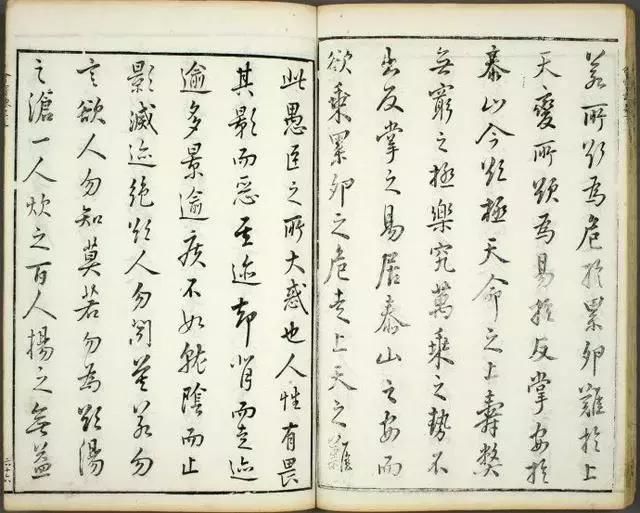 若所欲為危於累卵難於上
天變所欲為易於反掌安於
泰山今欲極天命之上壽弊
無窮之極樂究萬乘之勢不
出反掌之易居泰山之安而
欲乘累卵之危走上天之難
此愚臣之所大惑也人性有畏
其影而惡其迹却背而走迹
逾多景逾疾不如就陰而止
影滅迹絕欲人勿聞莫若勿
言欲人勿知莫若勿為欲湯
之滄一人炊之百人揚之無益